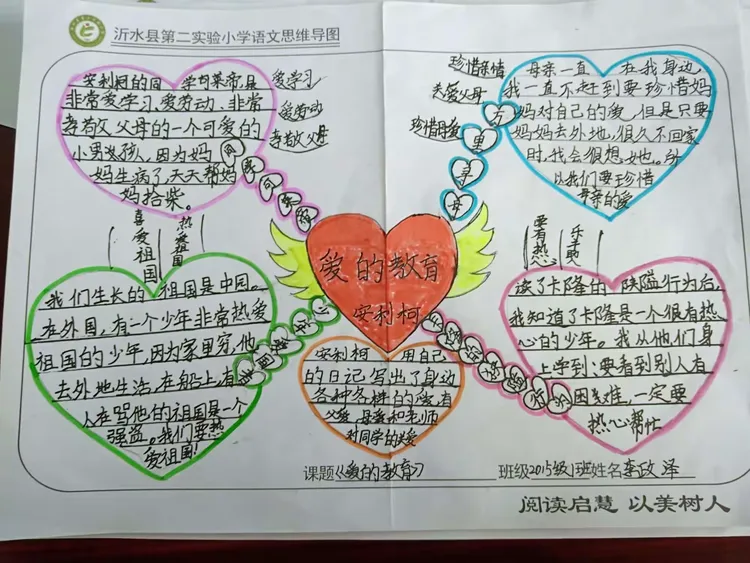 沂水县第二实验小学语文思维导图
安利柯的同学可莱帝是
非常爱学习、爱劳动、非常
孝敬父母的一个可爱的
小男孩,因为妈
妈生病了,天天帮妈
妈拾柴。
爱学习
爱劳动
孝敬父母
珍惜亲情
关爱父母
珍惜母爱
万
里
寻
母
母亲一直在我身边,
我一直不赶到要珍惜妈
妈对自己的爱,但是只要
妈妈去外地,很久不回家
时,我会很想她。所
以我们要珍惜
母亲的爱
喜爱祖国
热爱国
要有热心
乐于助
爱的教育
安利柯
我们生长的祖国是中国。
在外国,有一个少年非常热爱
祖国的少年,因为家里穷,他
去外地生活,在船上,有
人在骂他的祖国是一个
强盗。我们要热
爱祖国!
安利柯用自己
的日记写出了身边
各种各样的爱,有
父爱、母爱和老师
对同学的关爱
读了卡隆的侠隘行为后,
我知道了卡隆是一个很有热
心的少年。我从他们身
上学到:要看到别人有
困难,一定要
热心帮忙
课题《爱的教育》 班级2015级1班姓名李政泽
阅读启慧 以美树人